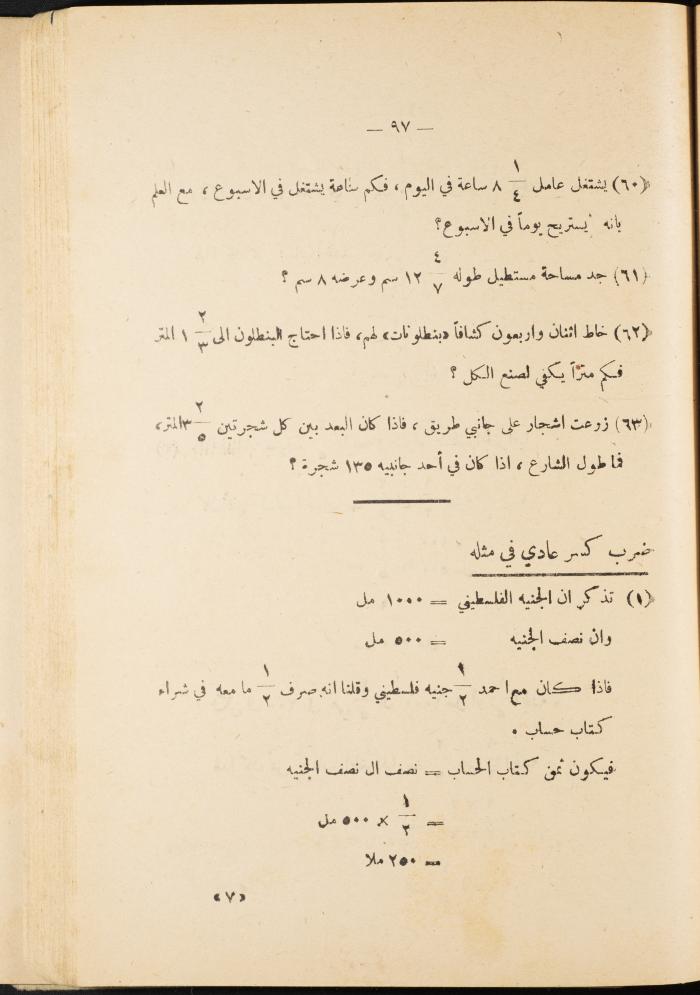 — ٩٧ —
(٦٠) يشتغل عامل ١/٤ ٨ ساعة في اليوم ، فكم ساعة يشتغل في الاسبوع ، مع العلم
بانه يستريح يوماً في الاسبوع؟
(٦١) جد مساحة مستطيل طوله ٤/٧ ١٢ سم وعرضه ٨ سم ؟
(٦٢) خاط اثنان واربعون كشافاً «بنطلونات» لهم، فاذا احتاج البنطلون الى ٢/٣ ١ المتر
فكم متراً يكفي لصنع الكل ؟
(٦٣) زرعت اشجار على جانبي طريق ، فاذا كان البعد بين كل شجرتين ٢/٥ ٣ المتر،
فما طول الشارع ، اذا كان في أحد جانبيه ١٣٥ شجرة ؟
ضرب كسر عادي في مثله
(١) تذكر ان الجنيه الفلسطيني = ١٠٠٠ مل
وان نصف الجنيه = ٥٠٠ مل
فاذا كان مع احمد ١/٢ جنيه فلسطيني وقلنا انه صرف ١/٢ ما معه في شراء
كتاب حساب .
فيكون ثمن كتاب الحساب = نصف ال نصف الجنيه
= ١/٢ × ٥٠٠ مل
= ٢٥٠ ملا
«٧»